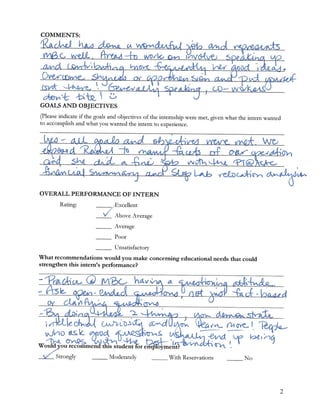 COMMENTS:
Rachel has done a wonderful job and represents
MBC well. Areas to work on involve speaking up
and contributing more frequently her good ideas.
Overcome shyness or apprehension and put yourself
out there! Generally speaking, co-workers
don't bite! ☺
GOALS AND OBJECTIVES
(Please indicate if the goals and objectives of the internship were met, given what the intern wanted
to accomplish and what you wanted the intern to experience.
Yes - all goals and objectives were met. We
exposed Rachel to many facets of our operation
and she did a fine job with the
financial summary and Sleep Lab relocation analysis
OVERALL PERFORMANCE OF INTERN
Rating: Excellent
✓ Above Average
Average
Poor
Unsatisfactory
What recommendations would you make concerning educational needs that could
strengthen this intern's performance?
- Practice @ MBC having a questioning attitude
- Ask open-ended questions, not just fact-based
or clarifying questions
- By doing these 2 things, you demonstrate
intellectual curiosity and you learn more! People
who ask good questions usually end up being
the ones with the best information!
Would you recommend this student for employment?
✓ Strongly Moderately With Reservations No
2